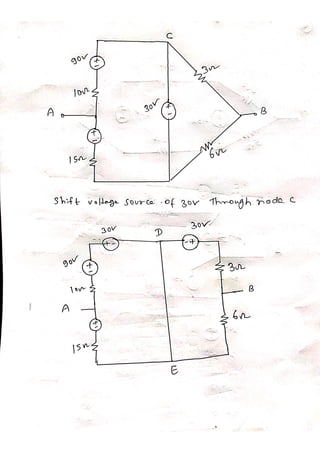 C
90v
+
-
3Ω
10Ω
A
30V
+
-
B
+
-
6Ω
15Ω
Shift voltage source of 30V Through node C
30V
D
30V
+ -
- +
90V
+
-
3Ω
10Ω
B
A
+
-
6Ω
15Ω
E